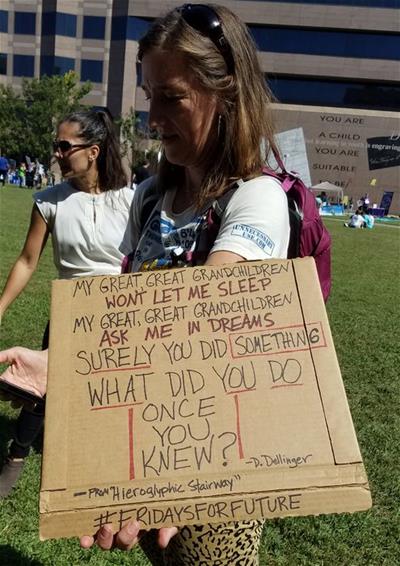 YOU ARE
A CHILD
YOU ARE
SUITABLE
TO BE
UNNECESSARY
USE.COM
MY GREAT, GREAT GRANDCHILDREN
WON'T LET ME SLEEP
MY GREAT, GREAT GRANDCHILDREN
ASK ME IN DREAMS
SURELY YOU DID SOMETHING
WHAT DID YOU DO
ONCE
YOU
KNEW?
-D. Dellinger
- FROM "Hieroglyphic Stairway"
#FRIDAYSFORFUTURE